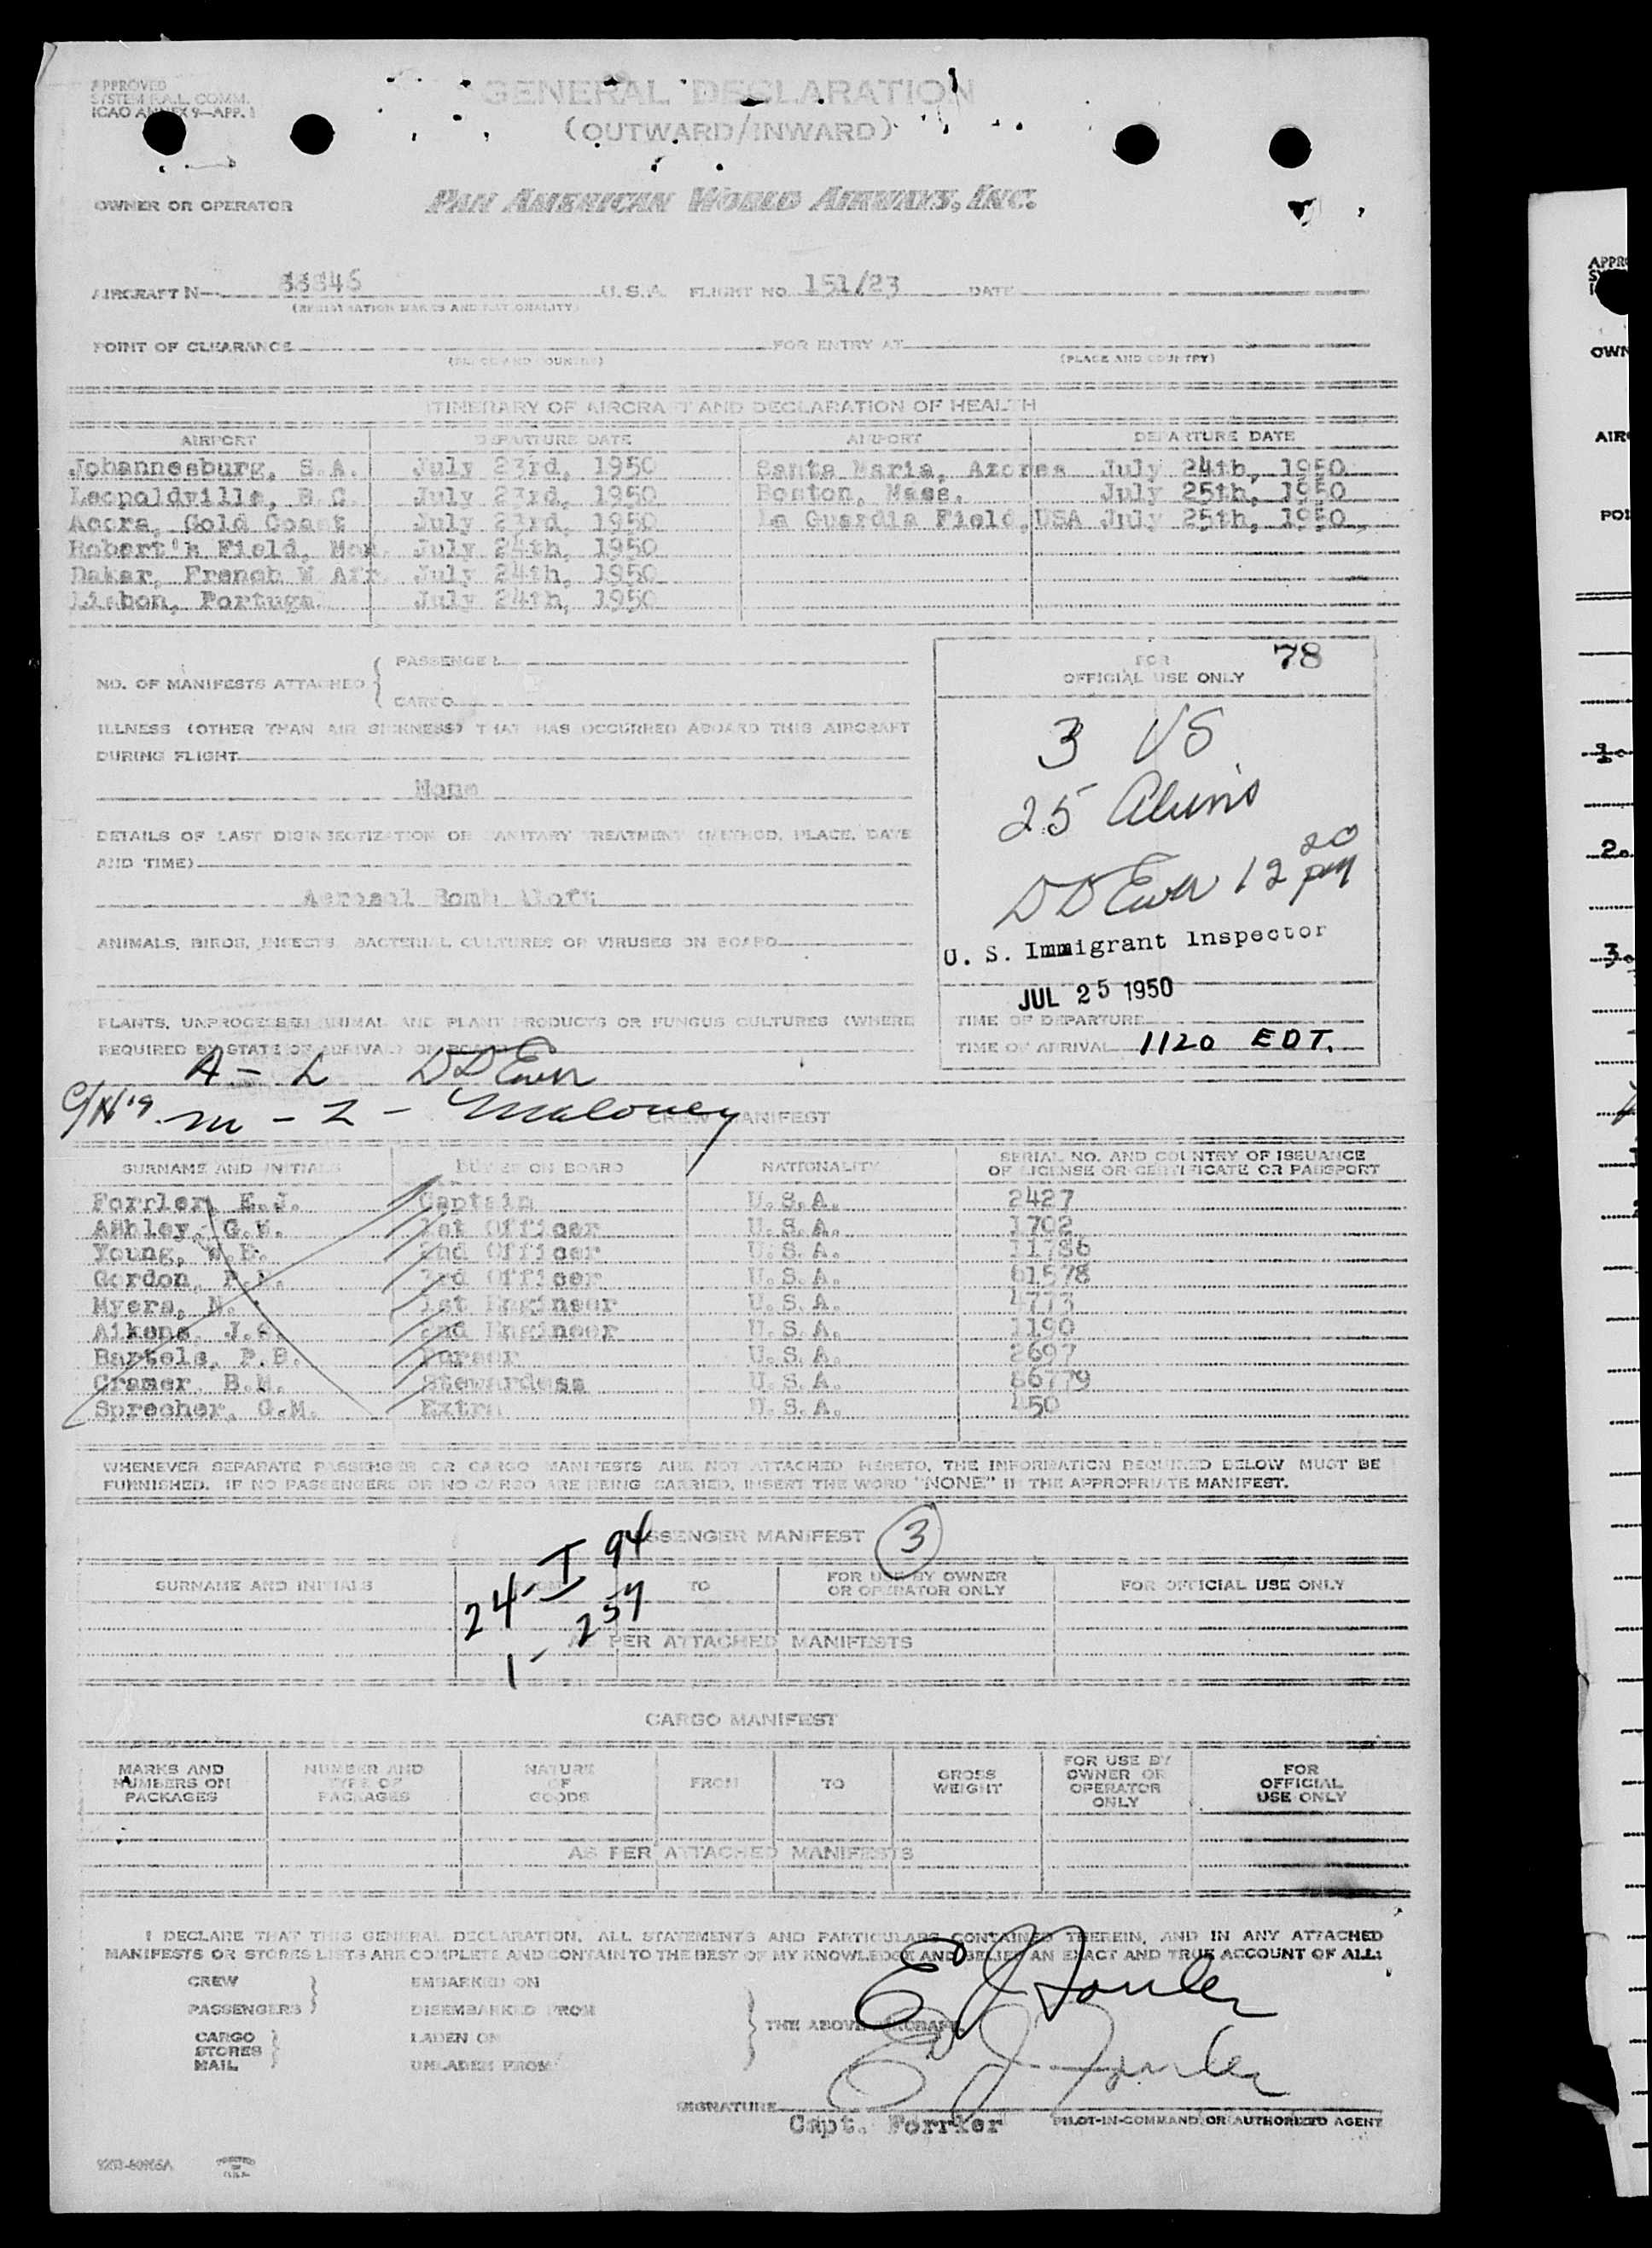 APPROVED
SYSTEM P.A.L. COMM.
ICAO ANNEX 9—APP. 1
GENERAL DECLARATION
(OUTWARD/INWARD)
OWNER OR OPERATOR PAN AMERICAN WORLD AIRWAYS, INC.
AIRCRAFT N— U.S.A. FLIGHT NO. 151/23 DATE
(REGISTRATION MARKS AND NATIONALITY)
POINT OF CLEARANCE FOR ENTRY AT
(PLACE AND COUNTRY) (PLACE AND COUNTRY)
ITINERARY OF AIRCRAFT AND DECLARATION OF HEALTH
AIRPORT DEPARTURE DATE AIRPORT DEPARTURE DATE
Johannesburg, S.A. July 23rd, 1950 Santa Maria, Azores July 24th, 1950
Leopoldville, B.C. July 23rd, 1950 Boston, Mass. July 25th, 1950
Accra, Gold Coast July 23rd, 1950 La Guardia Field, USA July 25th, 1950
Robert's Field, Mon. July 24th, 1950
Dakar, French W Afr. July 24th, 1950
Lisbon, Portugal July 24th, 1950
NO. OF MANIFESTS ATTACHED
PASSENGER
CARGO
FOR
OFFICIAL USE ONLY
78
ILLNESS (OTHER THAN AIR SICKNESS) THAT HAS OCCURRED ABOARD THIS AIRCRAFT
DURING FLIGHT
None
3 US
25 Aliens
DETAILS OF LAST DISINSECTIZATION OR SANITARY TREATMENT (METHOD, PLACE, DATE
AND TIME)
Aerosol Bomb Aloft
12 20 pm
ANIMALS, BIRDS, INSECTS, BACTERIAL CULTURES OR VIRUSES ON BOARD
U. S. Immigrant Inspector
JUL 25 1950
PLANTS, UNPROCESSED ANIMAL AND PLANT PRODUCTS OR FUNGUS CULTURES (WHERE
REQUIRED BY STATE OF ARRIVAL) ON BOARD
TIME OF DEPARTURE
TIME OF ARRIVAL 1120 EDT.
A - L
m - Z - Maloney
CREW MANIFEST
SURNAME AND INITIALS DUTIES ON BOARD NATIONALITY SERIAL NO. AND COUNTRY OF ISSUANCE
OF LICENSE OR CERTIFICATE OR PASSPORT
Forrler, E.J. Captain U.S.A. 2427
Ashley, G.W. 1st Officer U.S.A. 1702
Young, W.B. 2nd Officer U.S.A. 11786
Gordon, 3rd Officer U.S.A. 61578
Myers, N. 1st Engineer U.S.A. 4773
Aikens, J. 2nd Engineer U.S.A. 1190
Bartels, P.B. Purser U.S.A. 2697
Cramer, B.M. Stewardess U.S.A. 86779
Sprecher, G.M. Extra U.S.A. 450
WHENEVER SEPARATE PASSENGER OR CARGO MANIFESTS ARE NOT ATTACHED HERETO, THE INFORMATION REQUIRED BELOW MUST BE
FURNISHED. IF NO PASSENGERS OR NO CARGO ARE BEING CARRIED, INSERT THE WORD "NONE" IN THE APPROPRIATE MANIFEST.
PASSENGER MANIFEST 3
SURNAME AND INITIALS FROM TO FOR USE BY OWNER
OR OPERATOR ONLY FOR OFFICIAL USE ONLY
24 - I 94
1 - 257
AS PER ATTACHED MANIFESTS
CARGO MANIFEST
MARKS AND
NUMBERS ON
PACKAGES
NUMBER AND
TYPE OF
PACKAGES
NATURE
OF
GOODS
FROM
TO
GROSS
WEIGHT
FOR USE BY
OWNER OR
OPERATOR
ONLY
FOR
OFFICIAL
USE ONLY
AS PER ATTACHED MANIFESTS
I DECLARE THAT THIS GENERAL DECLARATION, ALL STATEMENTS AND PARTICULARS CONTAINED THEREIN, AND IN ANY ATTACHED
MANIFESTS OR STORES LISTS ARE COMPLETE AND CONTAIN TO THE BEST OF MY KNOWLEDGE AND BELIEF AN EXACT AND TRUE ACCOUNT OF ALL:
CREW EMBARKED ON
PASSENGERS DISEMBARKED FROM
CARGO LADEN ON
STORES
MAIL UNLADEN FROM
THE ABOVE AIRCRAFT.
SIGNATURE
Capt. Forrler PILOT-IN-COMMAND OR AUTHORIZED AGENT
PRINTED
IN
U.S.A.
1.
2.
3.